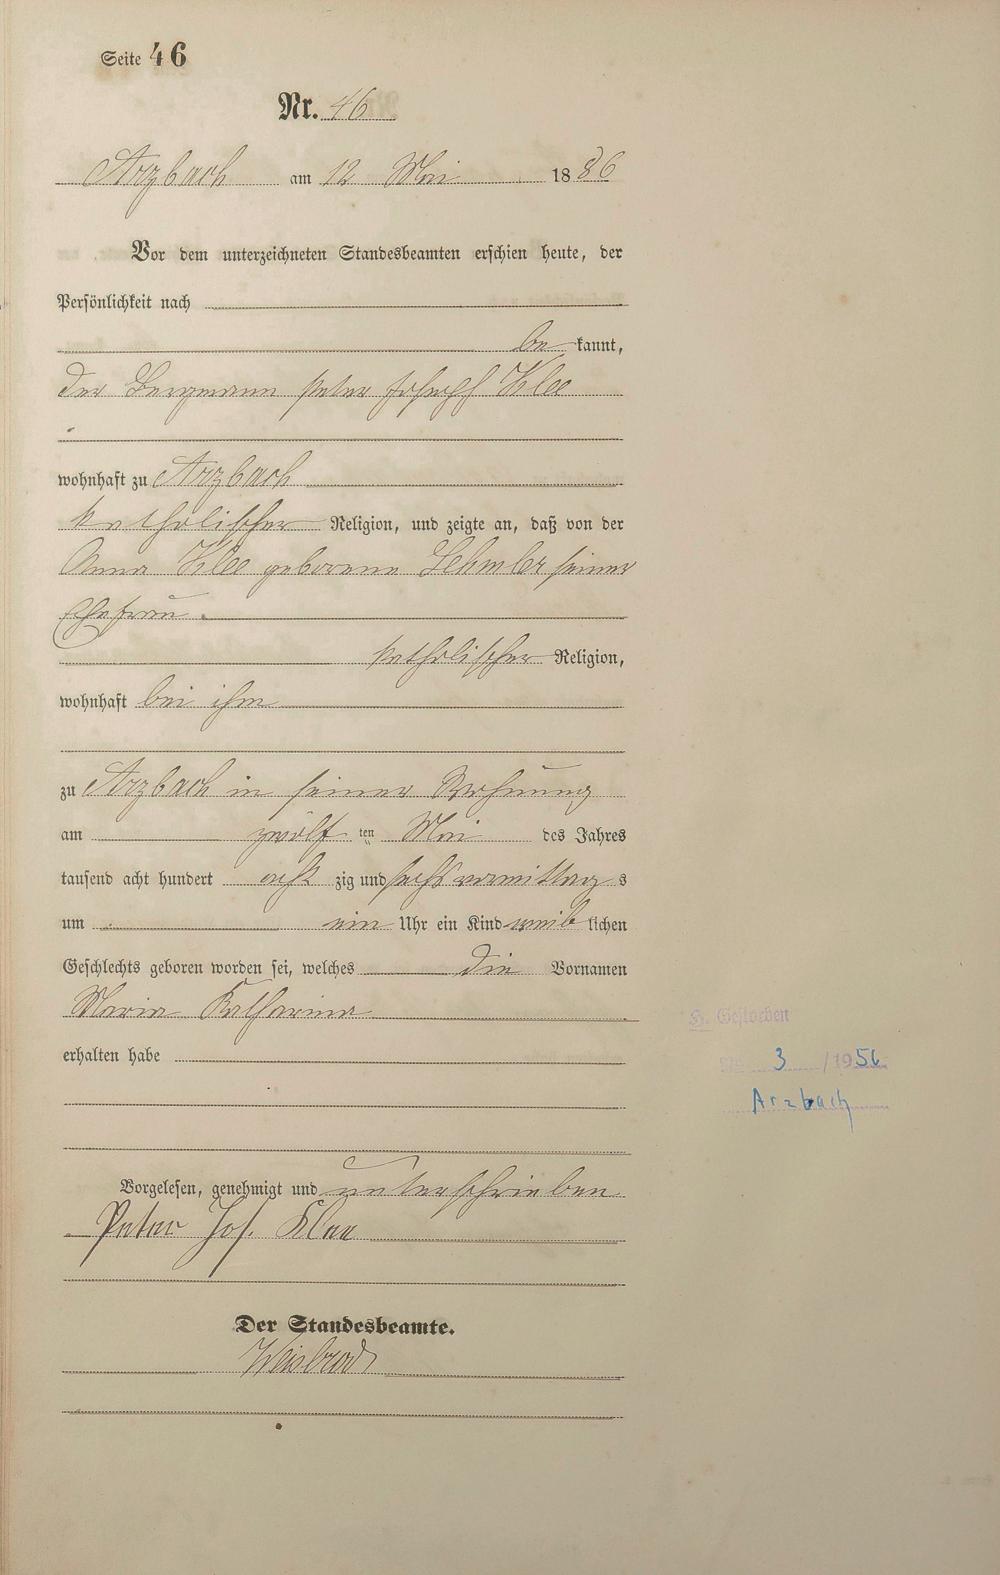 Seite 46
Nr. 46
Arzbach am 12 Mai 1886
Vor dem unterzeichneten Standesbeamten erschien heute, der
Persönlichkeit nach
bekannt,
der Bergmann Peter Joseph Klee
wohnhaft zu Arzbach
katholischer Religion, und zeigte an, daß von der
Anna Klee geborene Lehmler seiner
Ehefrau
katholischer Religion,
wohnhaft bei ihm
zu Arzbach in seiner Wohnung
am zwölften Mai des Jahres
tausend acht hundert achtzig und sechs vormittags
um ein Uhr ein Kind weiblichen
Geschlechts geboren worden sei, welches die Vornamen
Maria Katharina
H. Gestorben
erhalten habe
Nr. 3 /1956
Arzbach
Vorgelesen, genehmigt und unterschrieben
Peter Jos. Klee
Der Standesbeamte.
Weisbrod